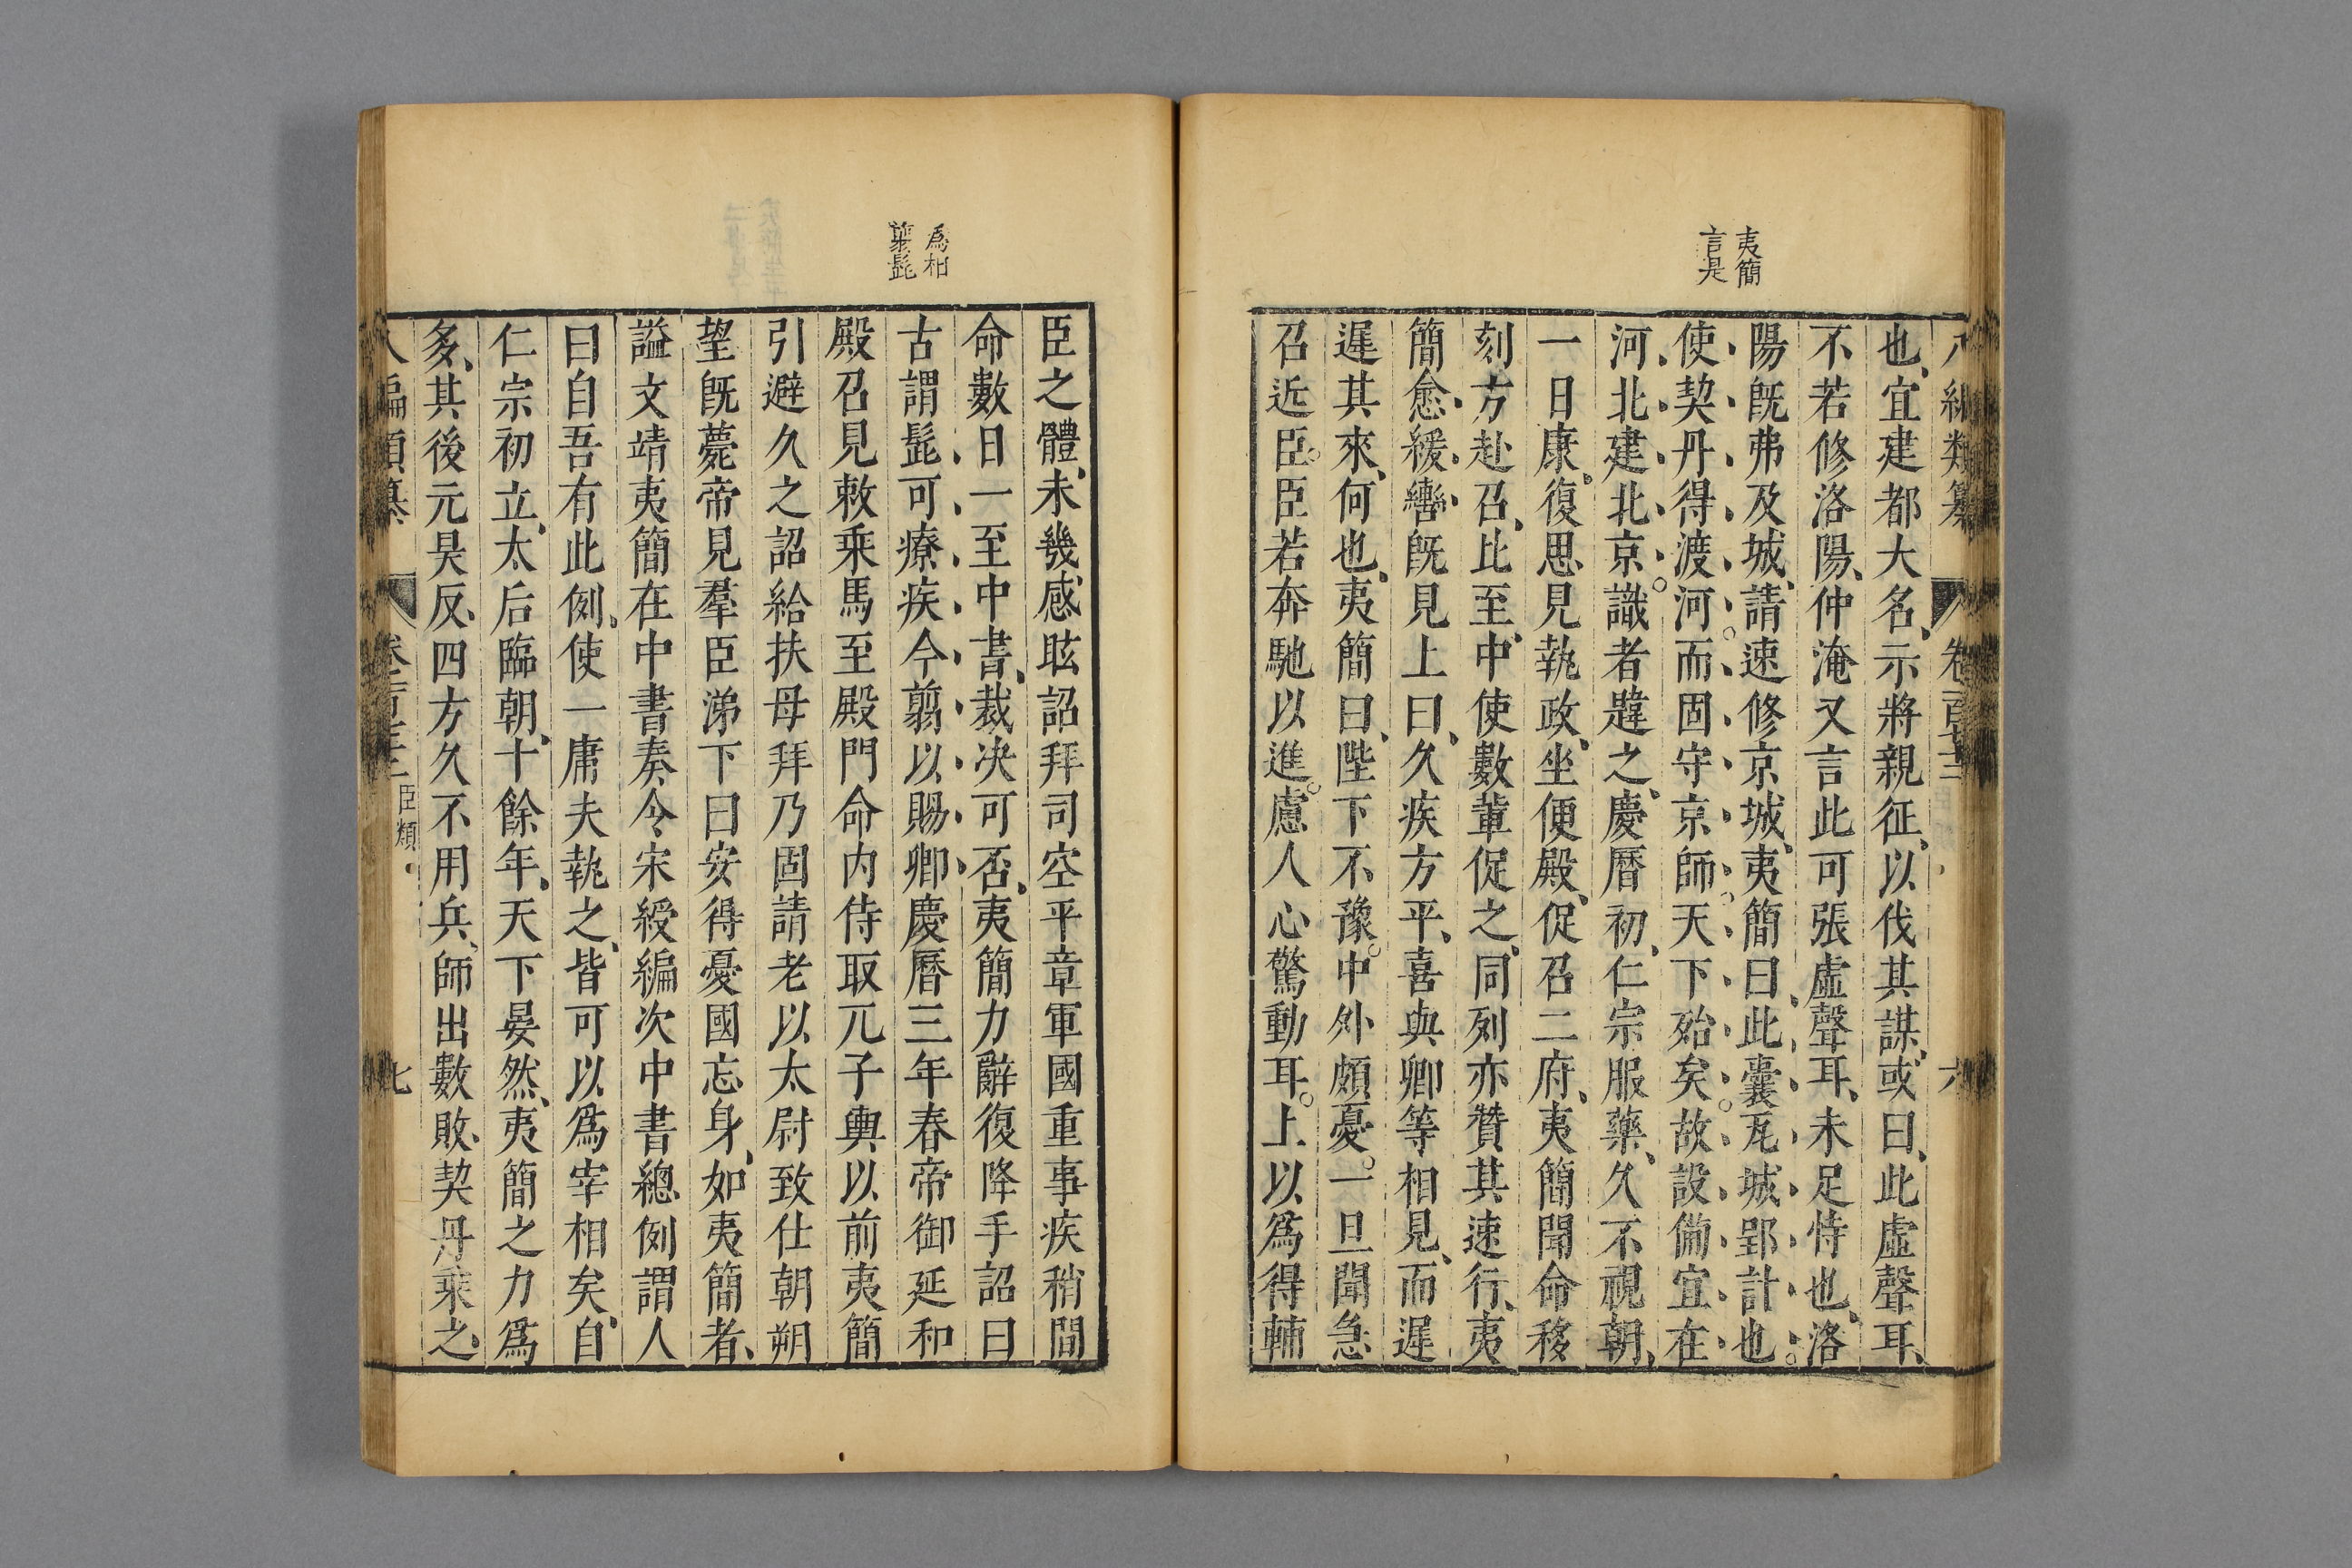 夷簡
言是
也宜建都大名示將親征以伐其謀或曰此虛聲耳
不若修洛陽仲淹又言此可張虛聲耳未足恃也洛
陽既弗及城請速修京城夷簡曰此囊瓦城郢計也
使契丹得渡河而固守京師天下殆矣故設備宜在
河北建北京識者韙之慶曆初仁宗服藥久不視朝
一日康復思見執政坐便殿促召二府夷簡聞命移
刻方赴召比至中使數輩促之同列亦贊其速行夷
簡愈緩轡既見上曰久疾方平喜與卿等相見而遲
遲其來何也夷簡曰陛下不豫中外頗憂一旦聞急
召近臣臣若奔馳以進慮人心驚動耳上以為得輔
為相
剪髭
臣之體未幾感眩詔拜司空平章軍國重事疾稍間
命數日一至中書裁决可否夷簡力辭復降手詔曰
古謂髭可療疾今翦以賜卿慶曆三年春帝御延和
殿召見敕乘馬至殿門命内侍取兀子輿以前夷簡
引避久之詔給扶母拜乃固請老以太尉致仕朝朔
望既薨帝見羣臣涕下曰安得憂國忘身如夷簡者
謚文靖夷簡在中書奏令宋綬編次中書總例謂人
曰自吾有此例使一庸夫執之皆可以為宰相矣自
仁宗初立太后臨朝十餘年天下晏然夷簡之力為
多其後元昊反四方久不用兵師出數敗契丹乘之
臣類
七